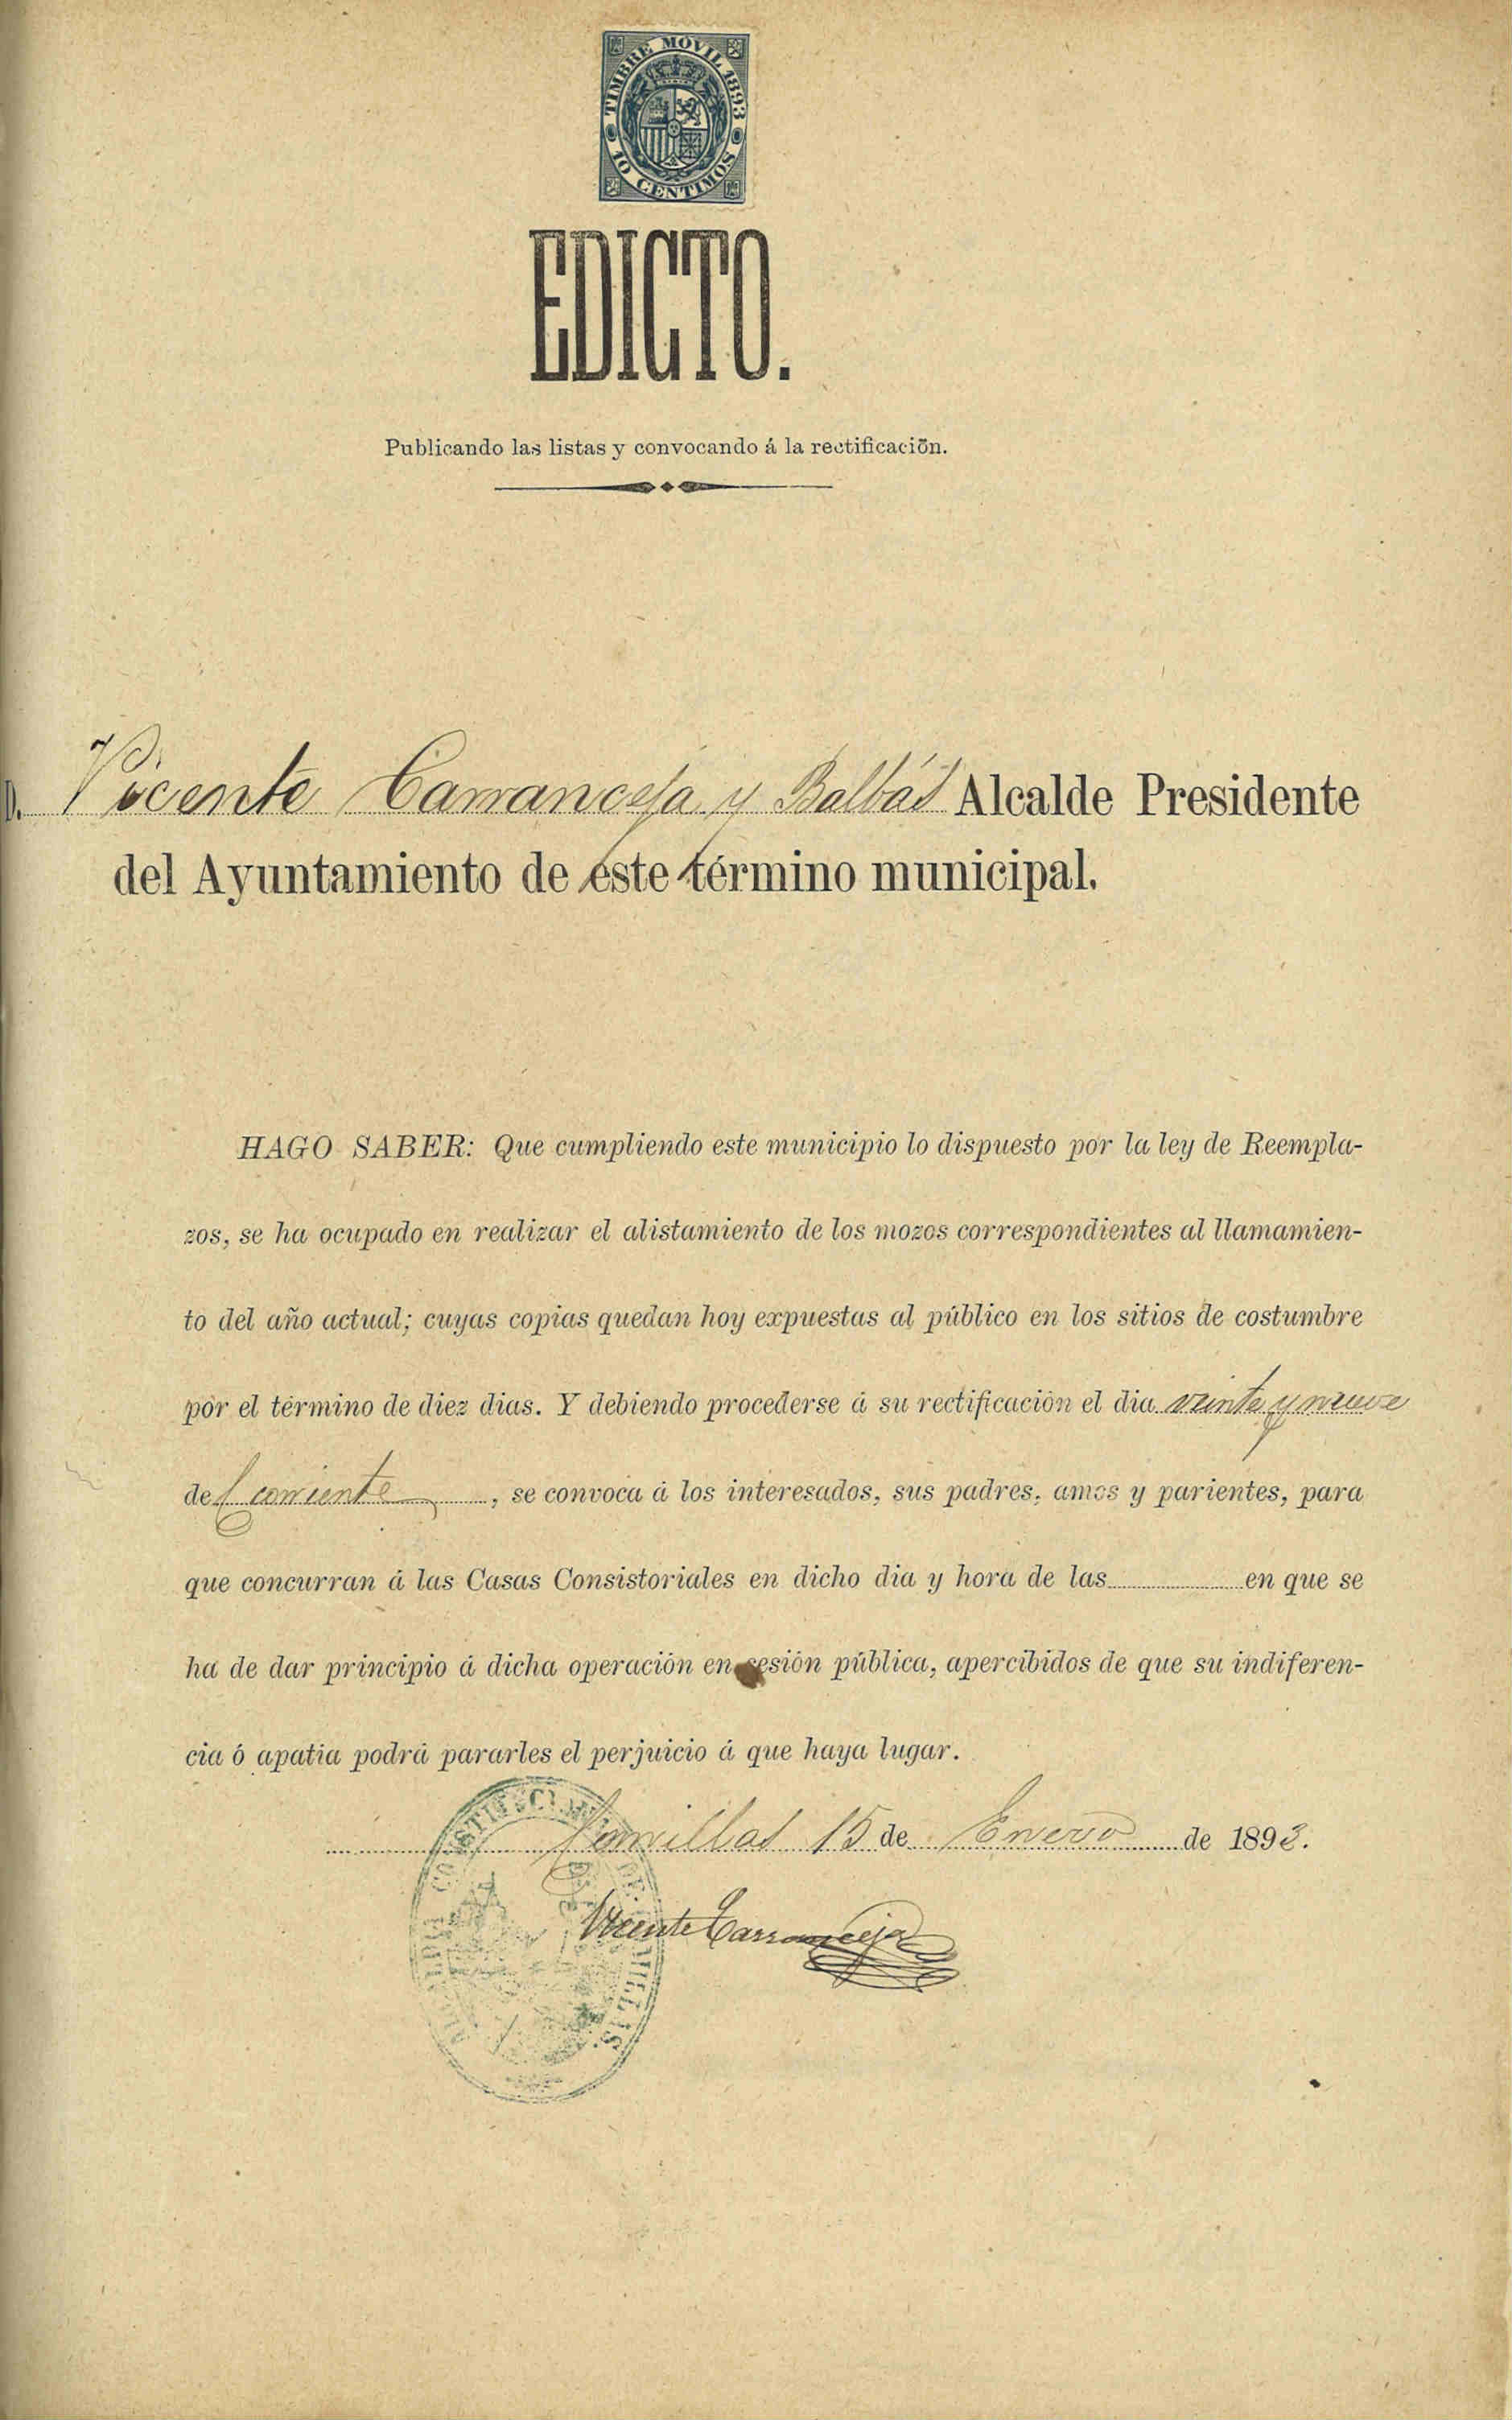 TIMBRE MÓVIL 1893
10 CENTIMOS
EDICTO.
Publicando las listas y convocando á la rectificación.
D. Vicente Carranceja y Balbás Alcalde Presidente
del Ayuntamiento de este término municipal.
HAGO SABER: Que cumpliendo este municipio lo dispuesto por la ley de Reempla-
zos, se ha ocupado en realizar el alistamiento de los mozos correspondientes al llamamien-
to del año actual; cuyas copias quedan hoy expuestas al público en los sitios de costumbre
por el término de diez dias. Y debiendo procederse á su rectificación el dia veinte y nueve
del corriente, se convoca á los interesados, sus padres, amos y parientes, para
que concurran á las Casas Consistoriales en dicho dia y hora de las en que se
ha de dar principio á dicha operación en sesión pública, apercibidos de que su indiferen-
cia ó apatia podrá pararles el perjuicio á que haya lugar.
Comillas 15 de Enero de 1893.
Vicente Carranceja